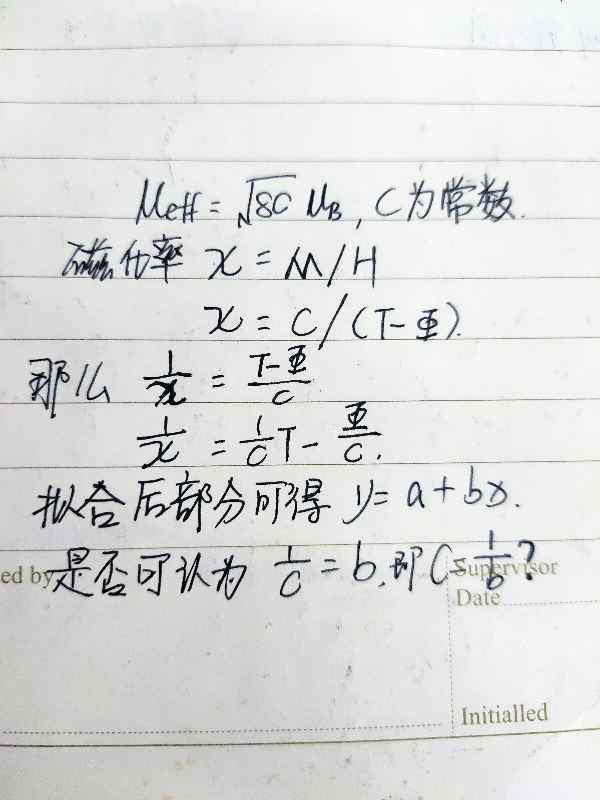 μeff = √8C μB, C为常数.
磁化率 χ = M/H
χ = C/(T-Φ).
那么 1/χ = (T-Φ)/C
1/χ = 1/C T - Φ/C.
拟合后部分可得 y = a + bx.
ed by 是否可认为 1/C = b, 即 C = 1/b ?
Supervisor
Date
Initialled